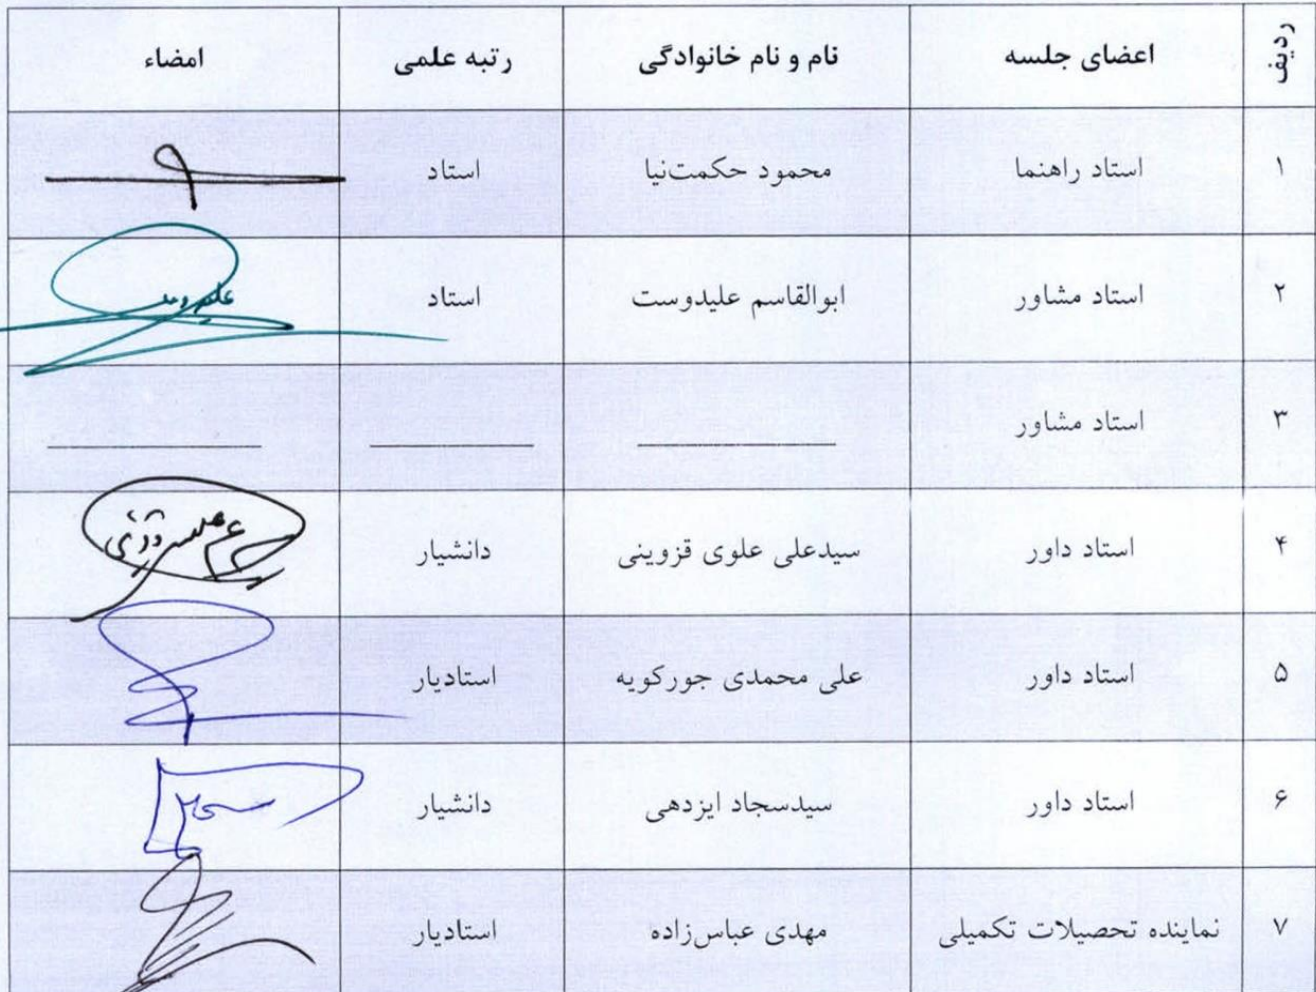 ردیف اعضای جلسه نام و نام خانوادگی رتبه علمی امضاء
۱ استاد راهنما محمود حکمت‌نیا استاد
۲ استاد مشاور ابوالقاسم علیدوست استاد
۳ استاد مشاور
۴ استاد داور سیدعلی علوی قزوینی دانشیار
۵ استاد داور علی محمدی جورکویه استادیار
۶ استاد داور سیدسجاد ایزدهی دانشیار
۷ نماینده تحصیلات تکمیلی مهدی عباس‌زاده استادیار